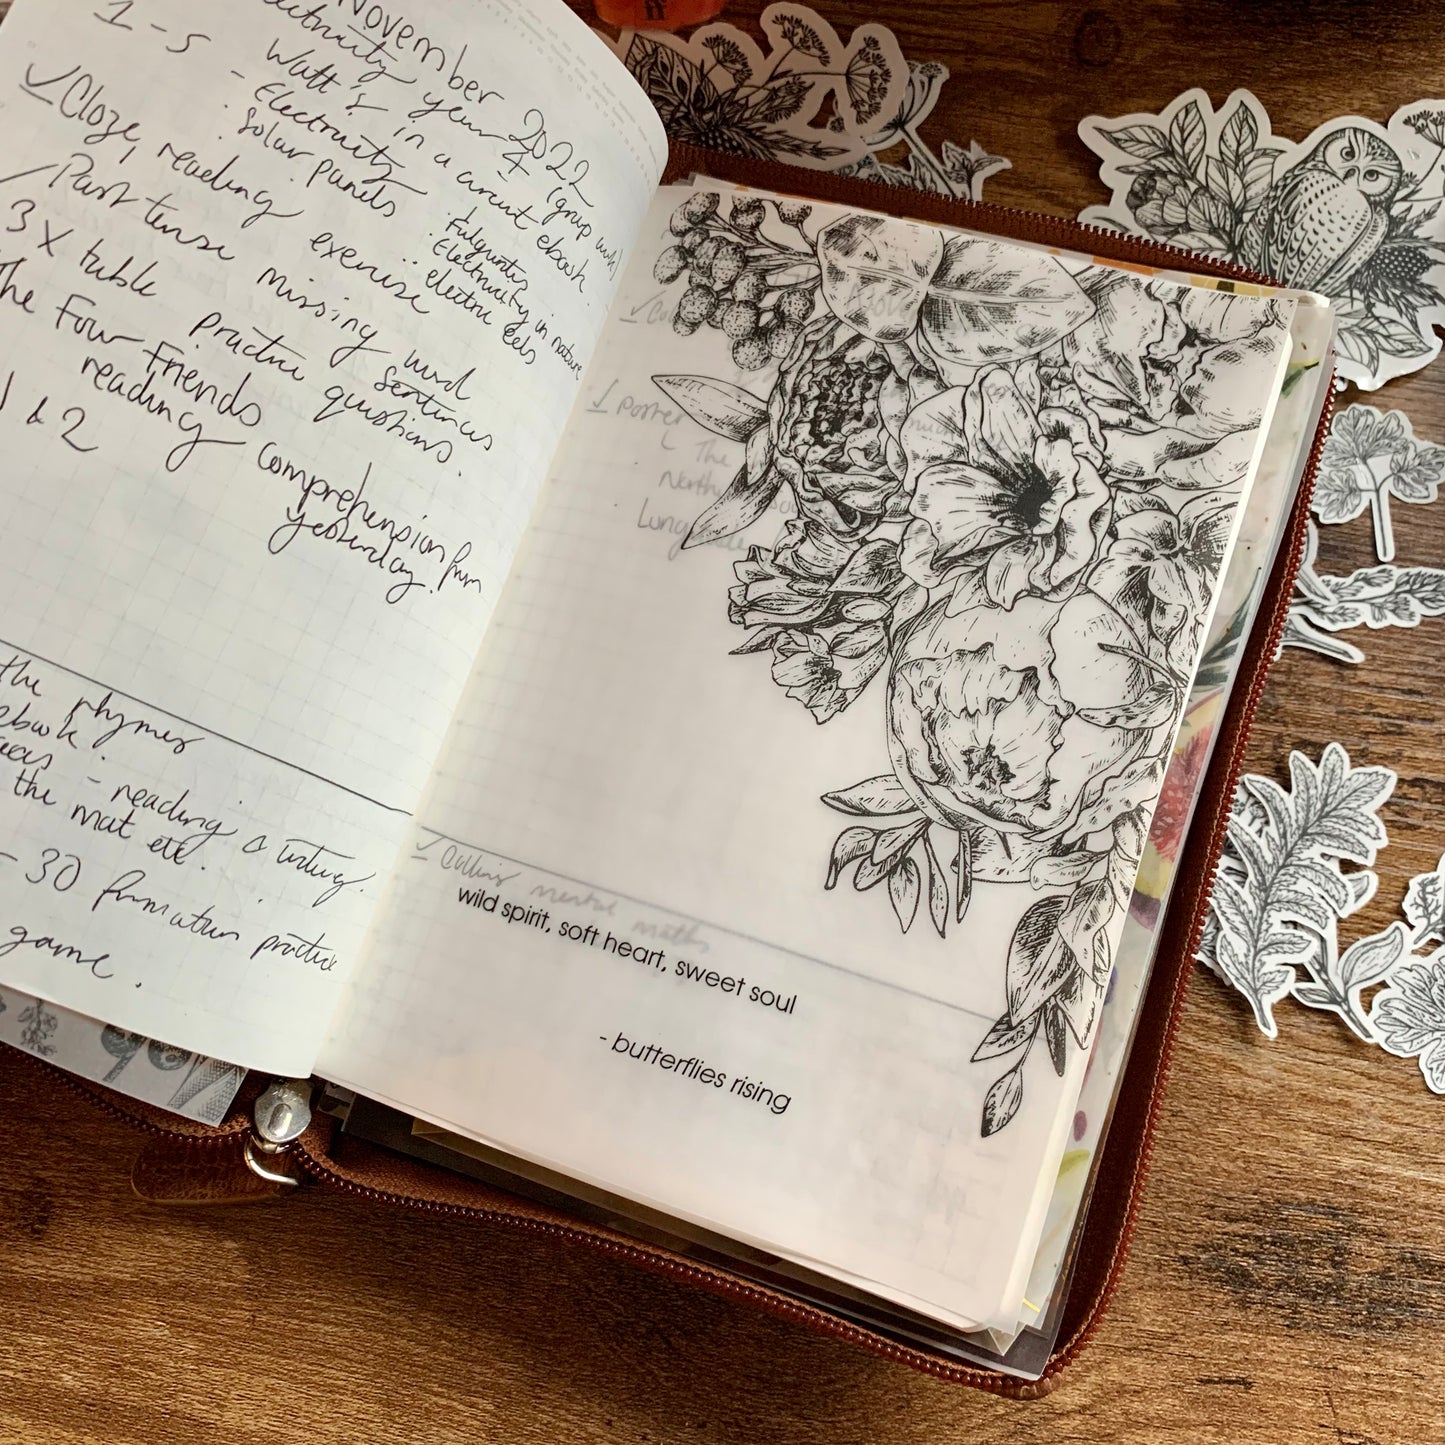 November 2022
1 - 5
Electricity year 4 (group work)
Watt's in a circuit ebook.
- Electricity
. Solar panels
. Fulgurites
. Electricity in nature
. electric eels
✓ Cloze, reading exercise
Past tense missing word sentences
3 x table practice questions.
The Four Friends
reading comprehension from
yesterday.
1 & 2
the rhymes
ebook.
- reading & writing.
the mat etc.
- 30 formation practice
game.
✓ poster
The
North
✓ Collins mental maths
wild spirit, soft heart, sweet soul
- butterflies rising